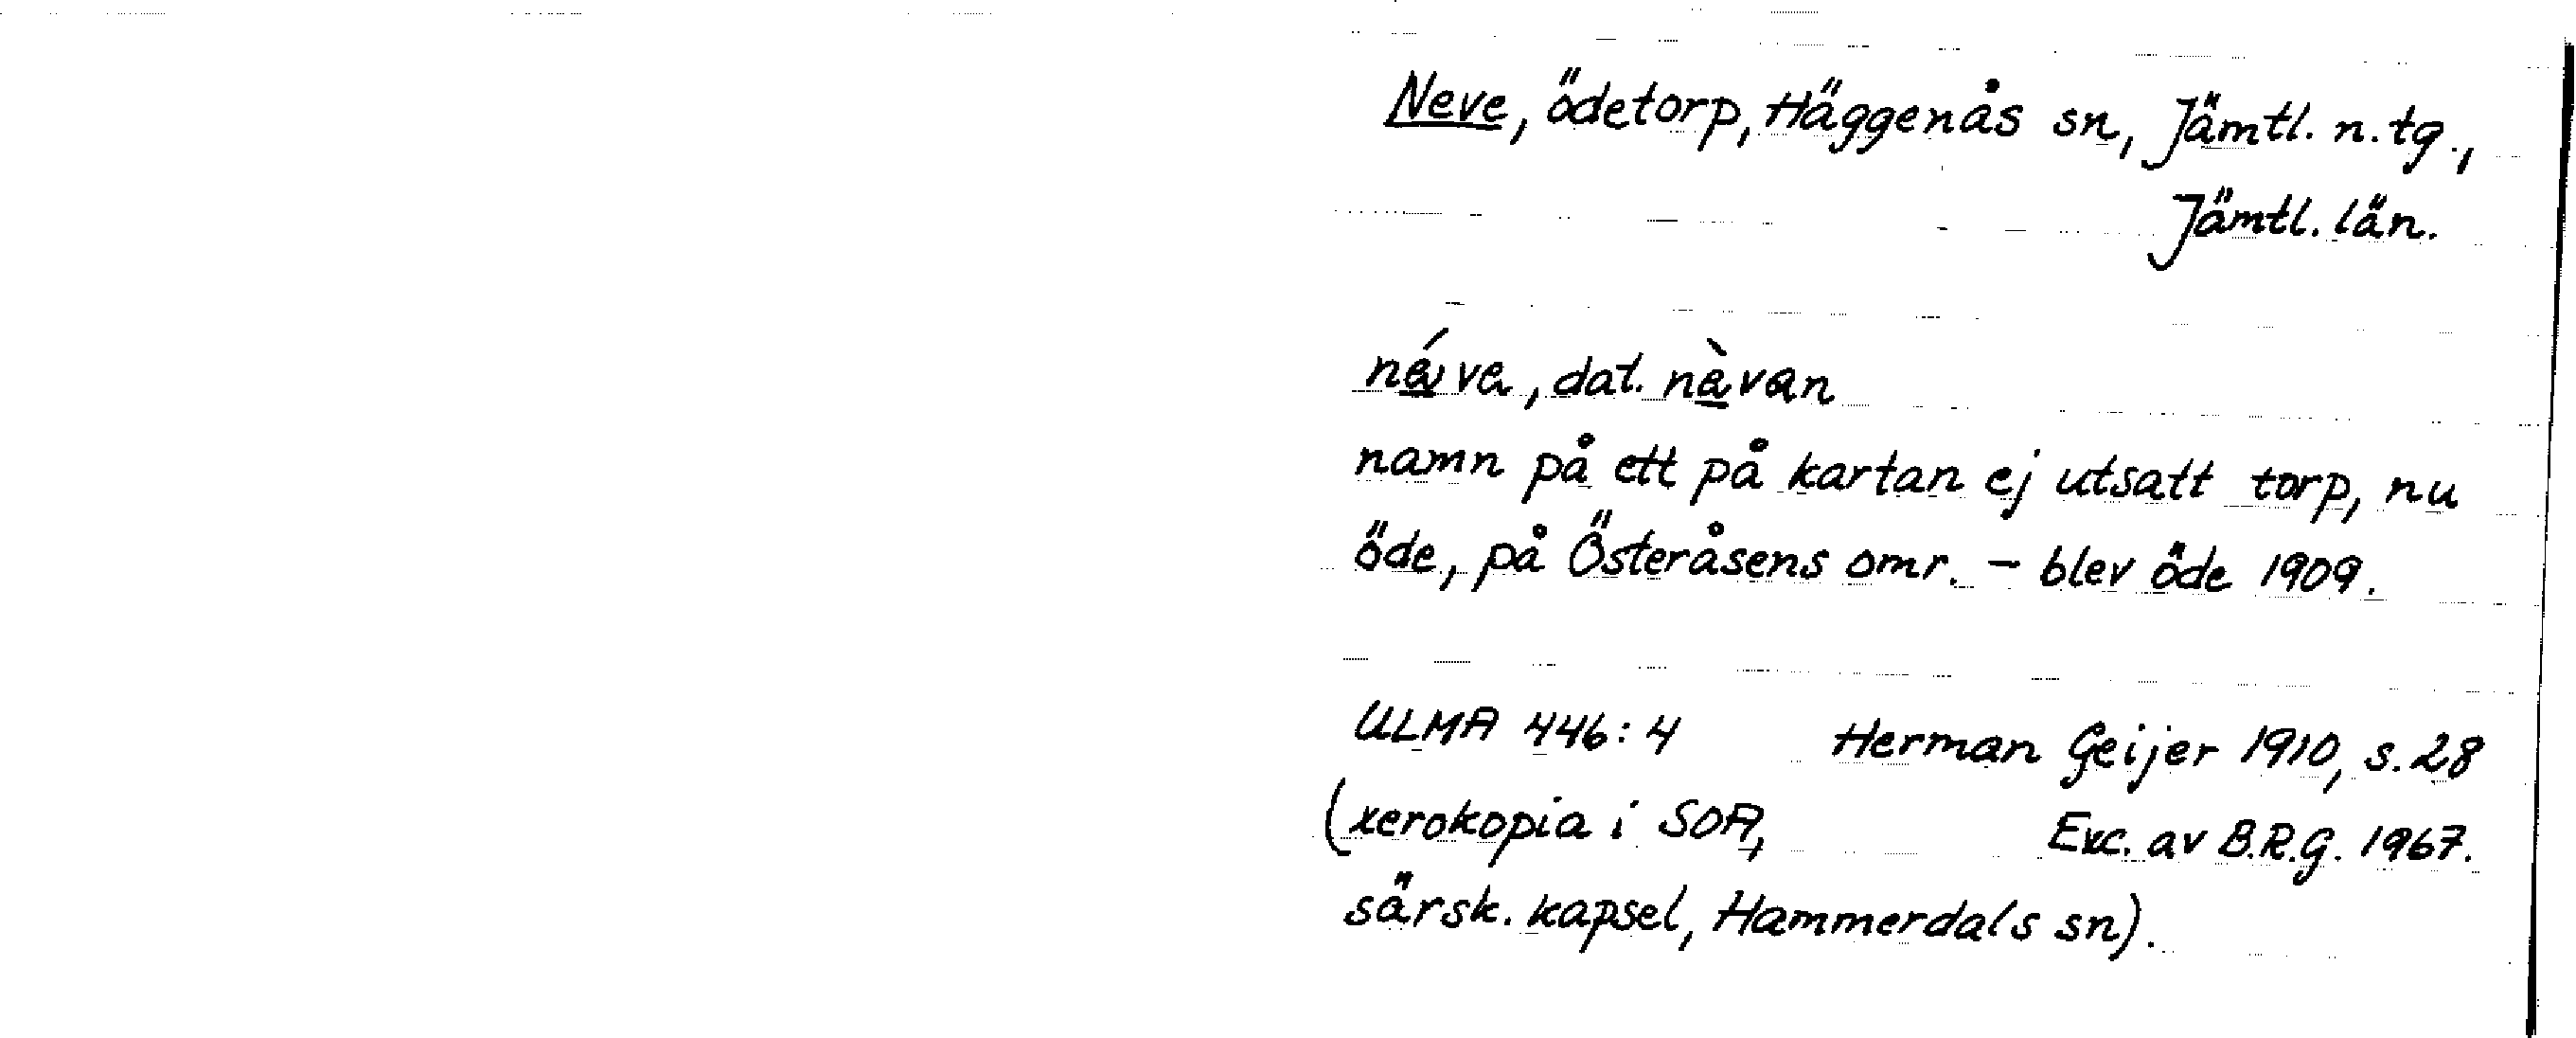 Neve, ödetorp, Häggenås sn, Jämtl. n. tg.,
Jämtl. län.
né̱va, dat. nè̱van
namn på ett på kartan ej utsatt torp, nu
öde, på Österåsens omr. – blev öde 1909.
ULMA 446:4 Herman Geijer 1910, s. 28
(xerokopia i SOA, Exc. av B.R.G. 1967.
särsk. kapsel, Hammerdals sn).